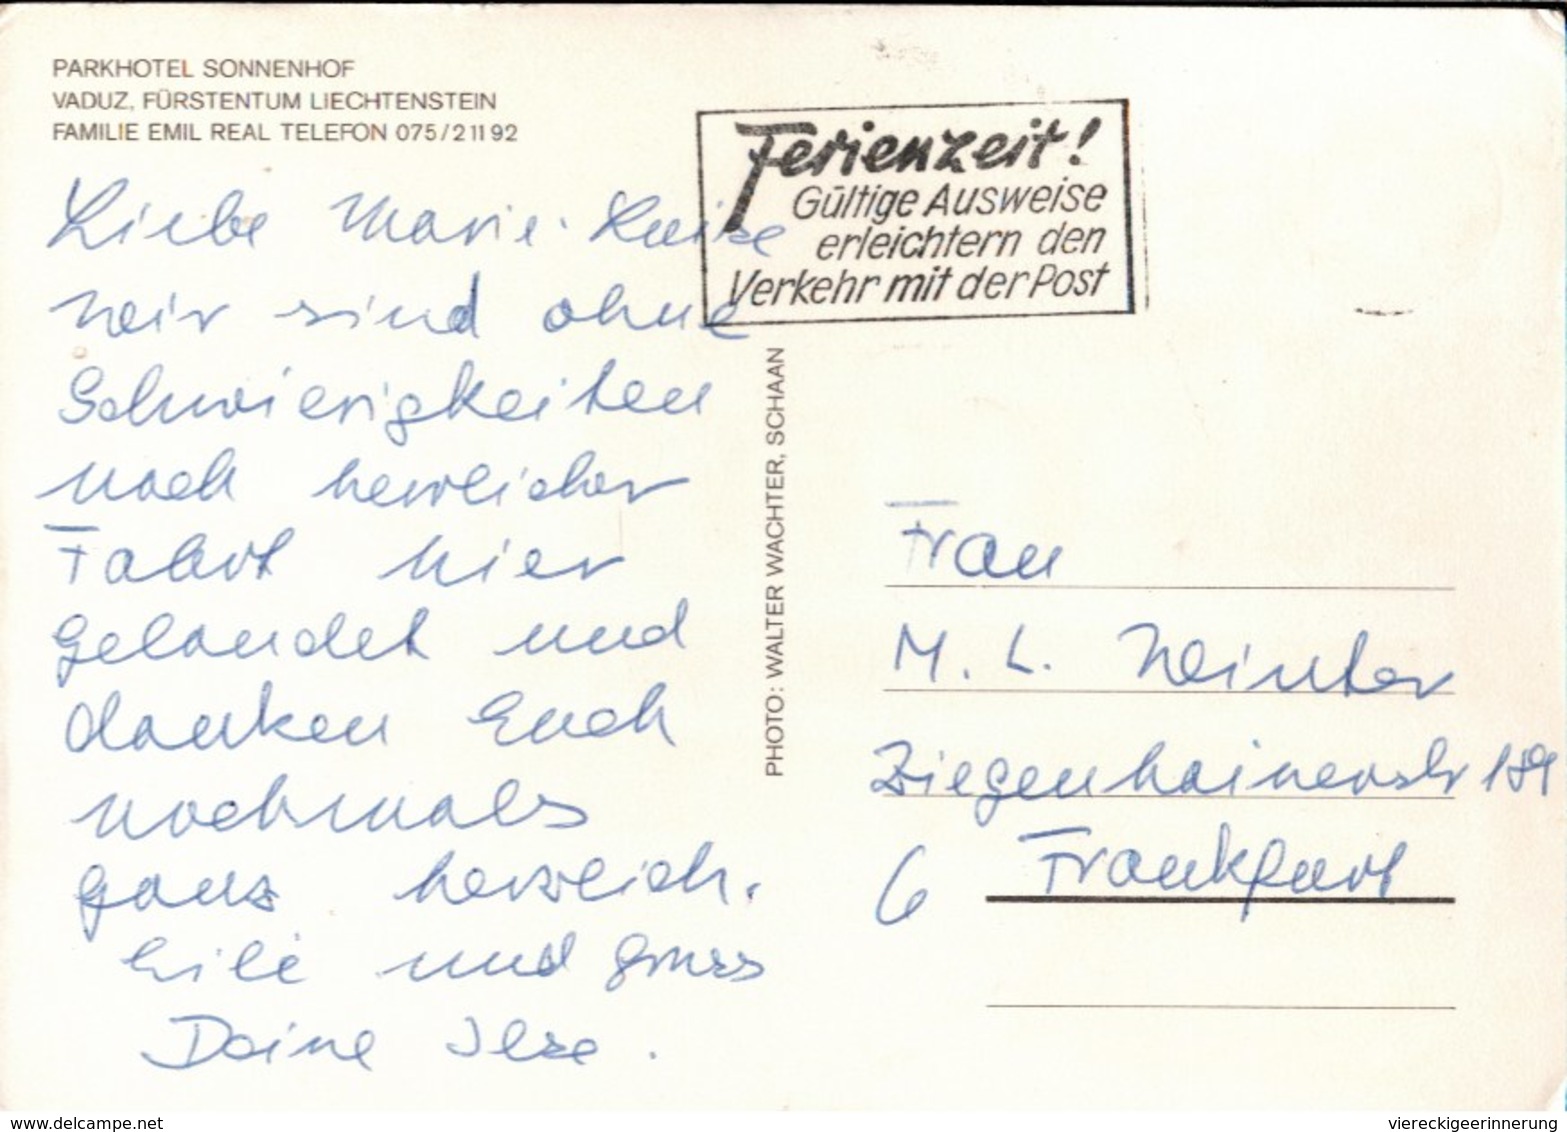 PARKHOTEL SONNENHOF
VADUZ, FÜRSTENTUM LIECHTENSTEIN
FAMILIE EMIL REAL TELEFON 075/2 11 92
Liebe Marie-Luise
wir sind ohne
Schwierigkeiten
nach herrlicher
Fahrt hier
gelandet und
danken Euch
nochmals
ganz herzlich.
und Gruss
Deine Ilse.
Ferienzeit!
Gültige Ausweise
erleichtern den
Verkehr mit der Post
PHOTO: WALTER WACHTER, SCHAAN
Frau
M. L. Winter
Ziegenhainerstr 189
6 Frankfurt
www.delcampe.net
viereckigeerinnerung